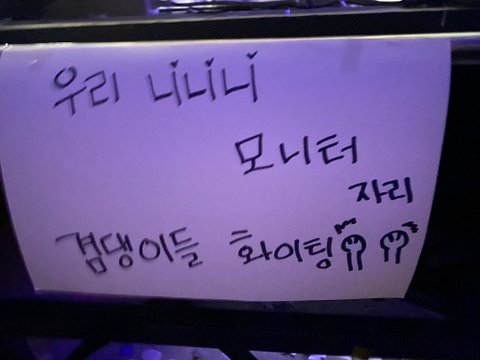 우리 니니니
모니터
자리
겸댕이들 화이팅